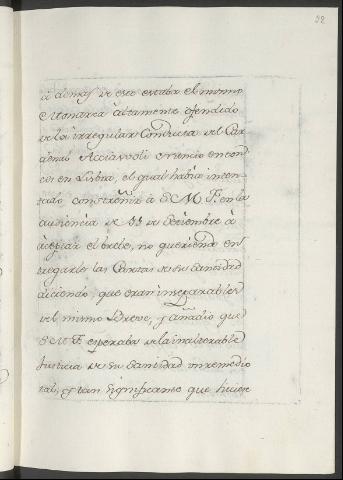 22
à demàs de esto estaba el mismo
Monarca altamente ofendido
de la irregular Conducta del Car
denal Acciaivoli Nuncio enton
ces en Lisboa, el qual había inten
tado constreñir à S. M. F. en la
audiencia de 22 de Deciembre à
aceptar el breve, no queriendo en
tregarle las Cartas de su Santidad
diciendo, que eran inseparables
del mismo Breve, y añadio que
S. M. F. esperaba de la inalterable
Justicia de su Santidad un remedio
tal, y tan significante que hiciese